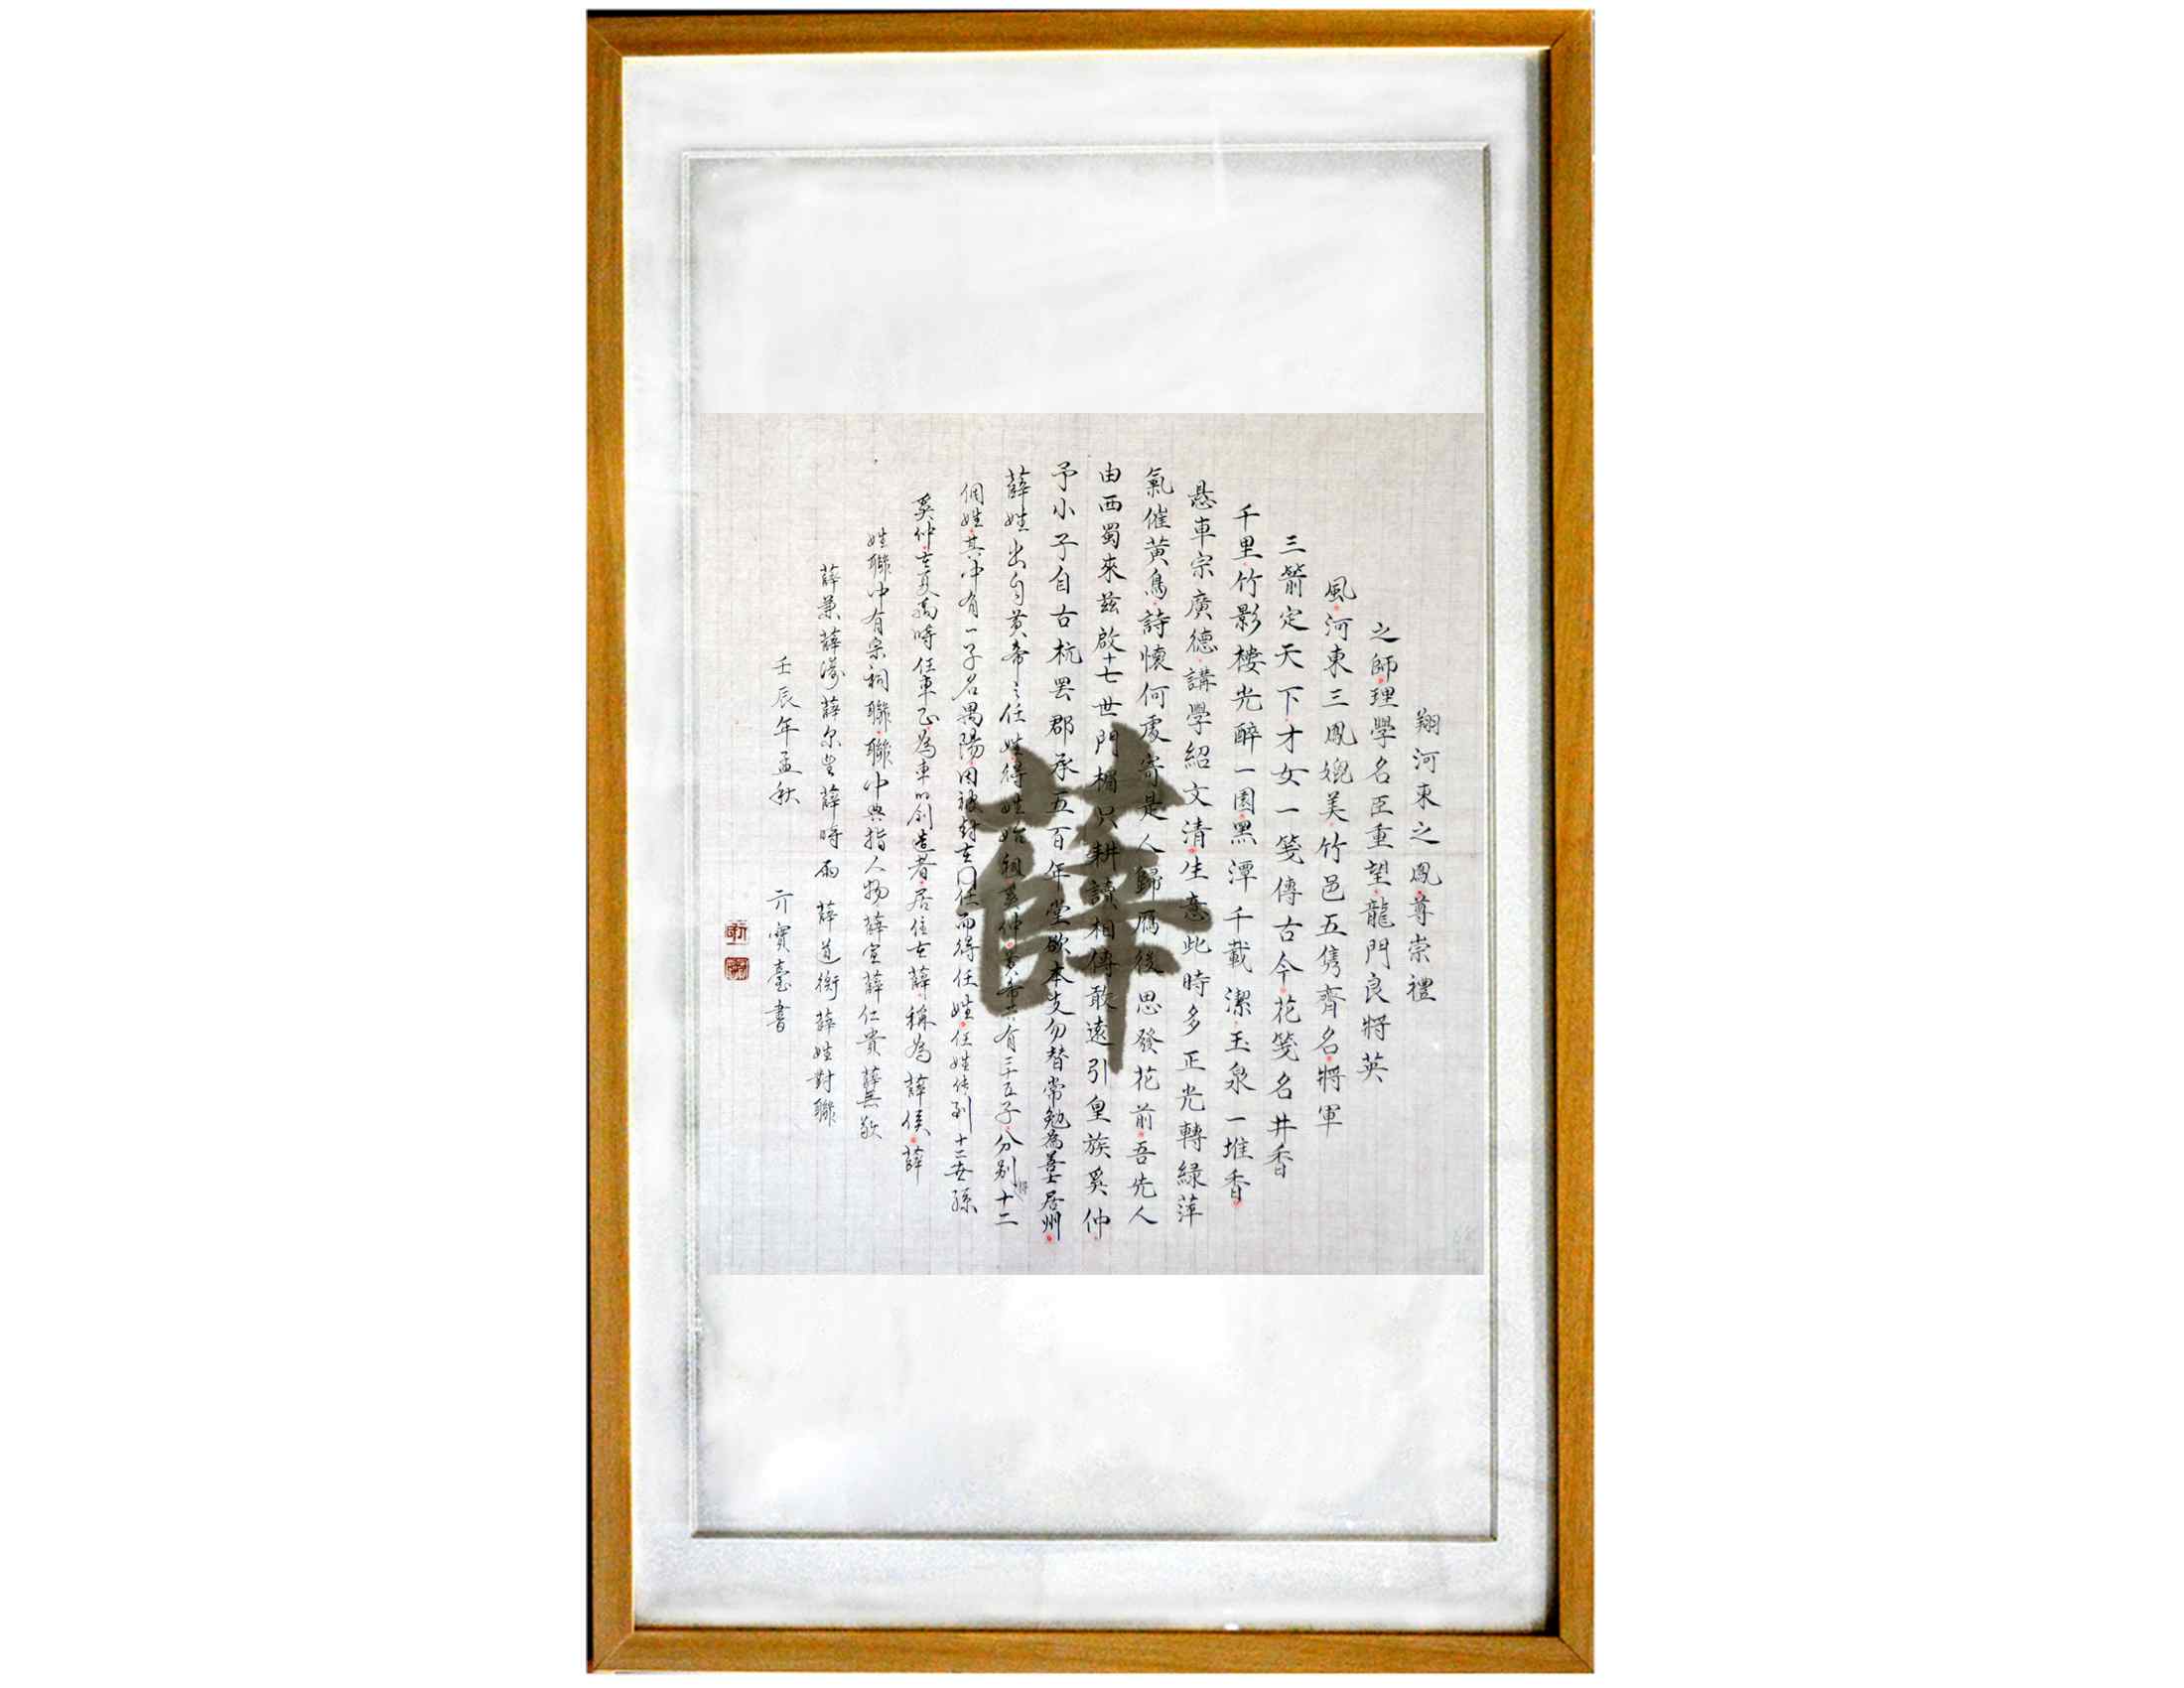 薛
翔河東之鳳尊崇禮
之師理學名臣重望龍門良將英
風河東三鳳媲美竹邑五雋齊名將軍
三箭定天下才女一箋傳古今花箋名井香
千里竹影樓光醉一園黑潭千載潔玉泉一堆香
悬車宗廣德講學紹文清生意此時多正光轉緑萍
氣催黄鳥詩懷何處寄是人歸雁後思發花前吾先人
由西蜀來兹啟十七世門楣只耕讀相傳敢遠引皇族奚仲
予小子自古杭罢郡承五百年堂欲本支勿替常勉為善士居州
薛姓出自黄帝之任姓得姓始祖奚仲黄帝共有二十五子分别十二
個姓其中有一子名禺陽因被封在任而得任姓任姓传到十二世孫
奚仲在夏禹時任車正為車的創造者居住在薛稱為薛侯薛
姓聯中有宗祠聯聯中典指人物薛宣薛仁贵薛
薛兼薛濤薛尔望薛時雨薛道衡薛姓對聯
壬辰年孟秋 寶臺書